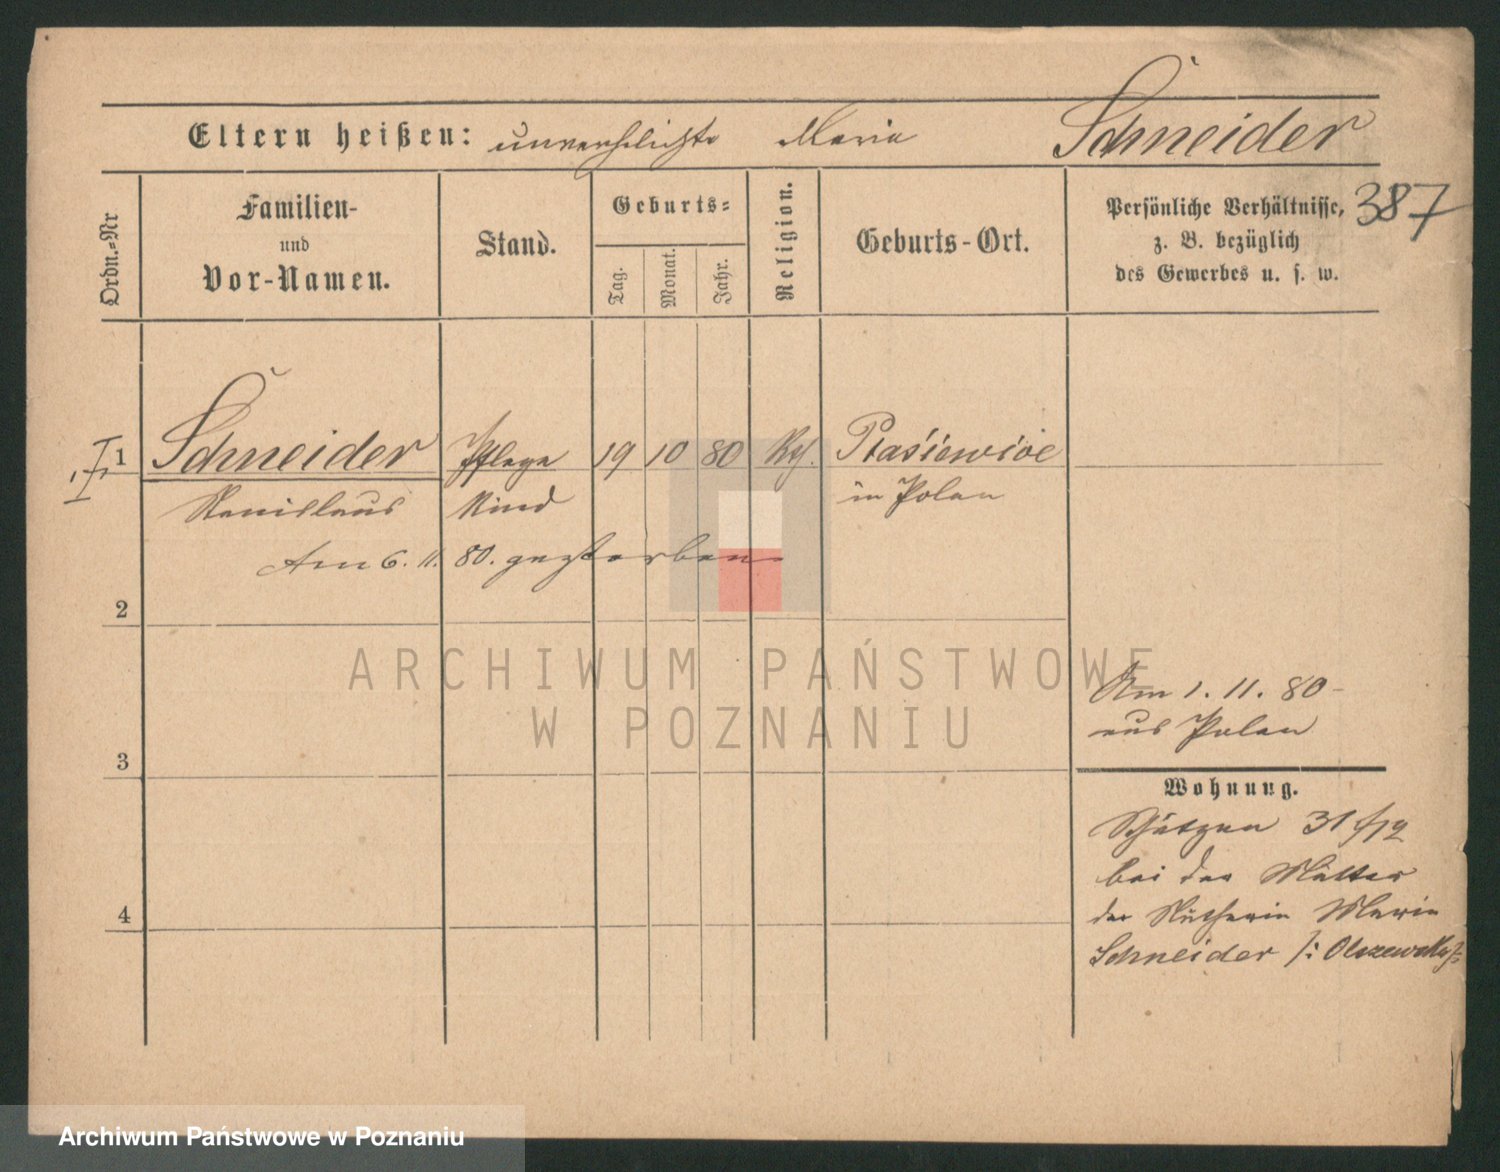 Eltern heißen: unverehelichte Maria Schneider
387
Ordn.=Nr
Familien-
und
Vor-Namen.
Stand.
Geburts=
Tag.
Monat.
Jahr.
Religion.
Geburts-Ort.
Persönliche Verhältnisse,
z. B. bezüglich
des Gewerbes u. s. w.
1 Schneider Pflege 19 10 80 Kath.
Stanislaus Kind in Polen
Am 6. 11. 80. gestorben
2
3
4
Am 1. 11. 80
aus Polen
Wohnung.
Schützen 31
bei der Mutter
der Marie
Schneider /: Olszewska :/
ARCHIWUM PAŃSTWOWE
W POZNANIU
Archiwum Państwowe w Poznaniu